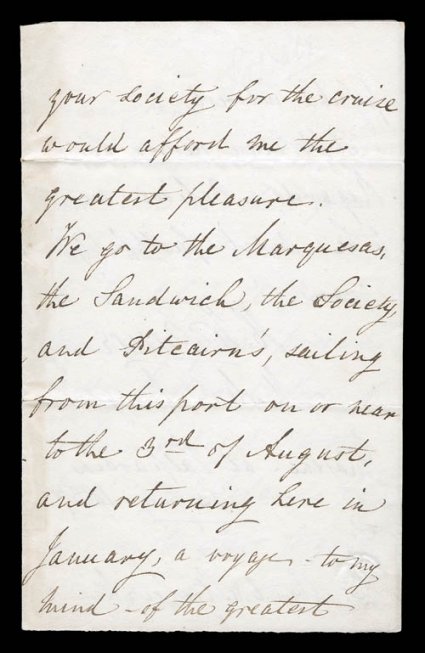 your society for the cruise
would afford me the
greatest pleasure.
We go to the Marquesas,
the Sandwich, the Society
and Pitcairn's, sailing
from this port on or near
to the 3rd of August,
and returning here in
January, a voyage - to my
mind - of the greatest